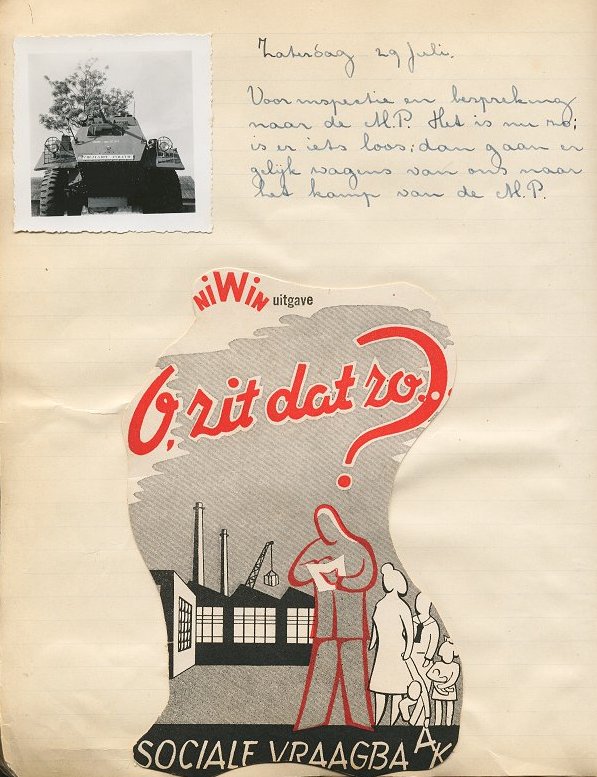 Zaterdag 29 Juli.
Voor inspectie en bespreking
naar de M.P. Het is nu zo;
is er iets loos; dan gaan er
gelijk wagens van ons naar
het kamp van de M.P.
NiWiN uitgave
O, zit dat zo..?
SOCIALE VRAAGBAAK